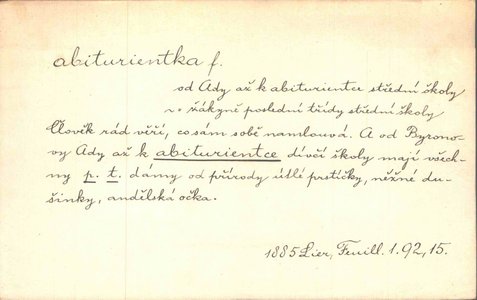 abiturientka f.
od Ady až k abiturientce střední školy
žákyně poslední třídy střední školy
Člověk rád věří, co sám sobě namlouvá. A od Byrono-
vy Ady až k abiturientce dívčí školy mají všech-
ny p. t. dámy od přírody útlé prstíčky, něžné du-
šinky, andělská očka.
1885 Lier, Feuill. 1. 92, 15.